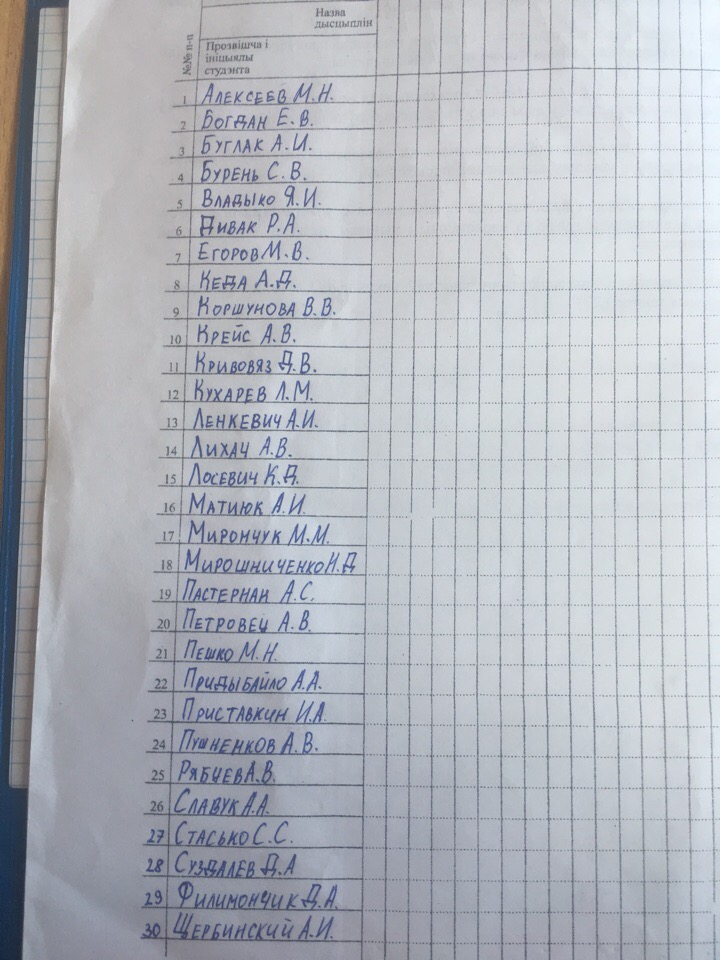 Назва
дысцыплін
№№ п-п
Прозвішча і
ініцыялы
студэнта
1 Алексеев М.Н.
2 Богдан Е.В.
3 Буглак А.И.
4 Бурень С.В.
5 Владыко Я.И.
6 Дивак Р.А.
7 Егоров М.В.
8 Кеда А.Д.
9 Коршунова В.В.
10 Крейс А.В.
11 Кривовяз Д.В.
12 Кухарев Л.М.
13 Ленкевич А.И.
14 Лихач А.В.
15 Лосевич К.Д.
16 Матиюк А.И.
17 Мирончук М.М.
18 Мирошниченко Н.Д
19 Пастернак А.С.
20 Петровец А.В.
21 Пешко М.Н.
22 Придыбайло А.А.
23 Приставкин И.А.
24 Пушненков А.В.
25 Рябцев А.В.
26 Славук А.А.
27 Стасько С.С.
28 Суздалев Д.А
29 Филимончик Д.А.
30 Щербинский А.И.